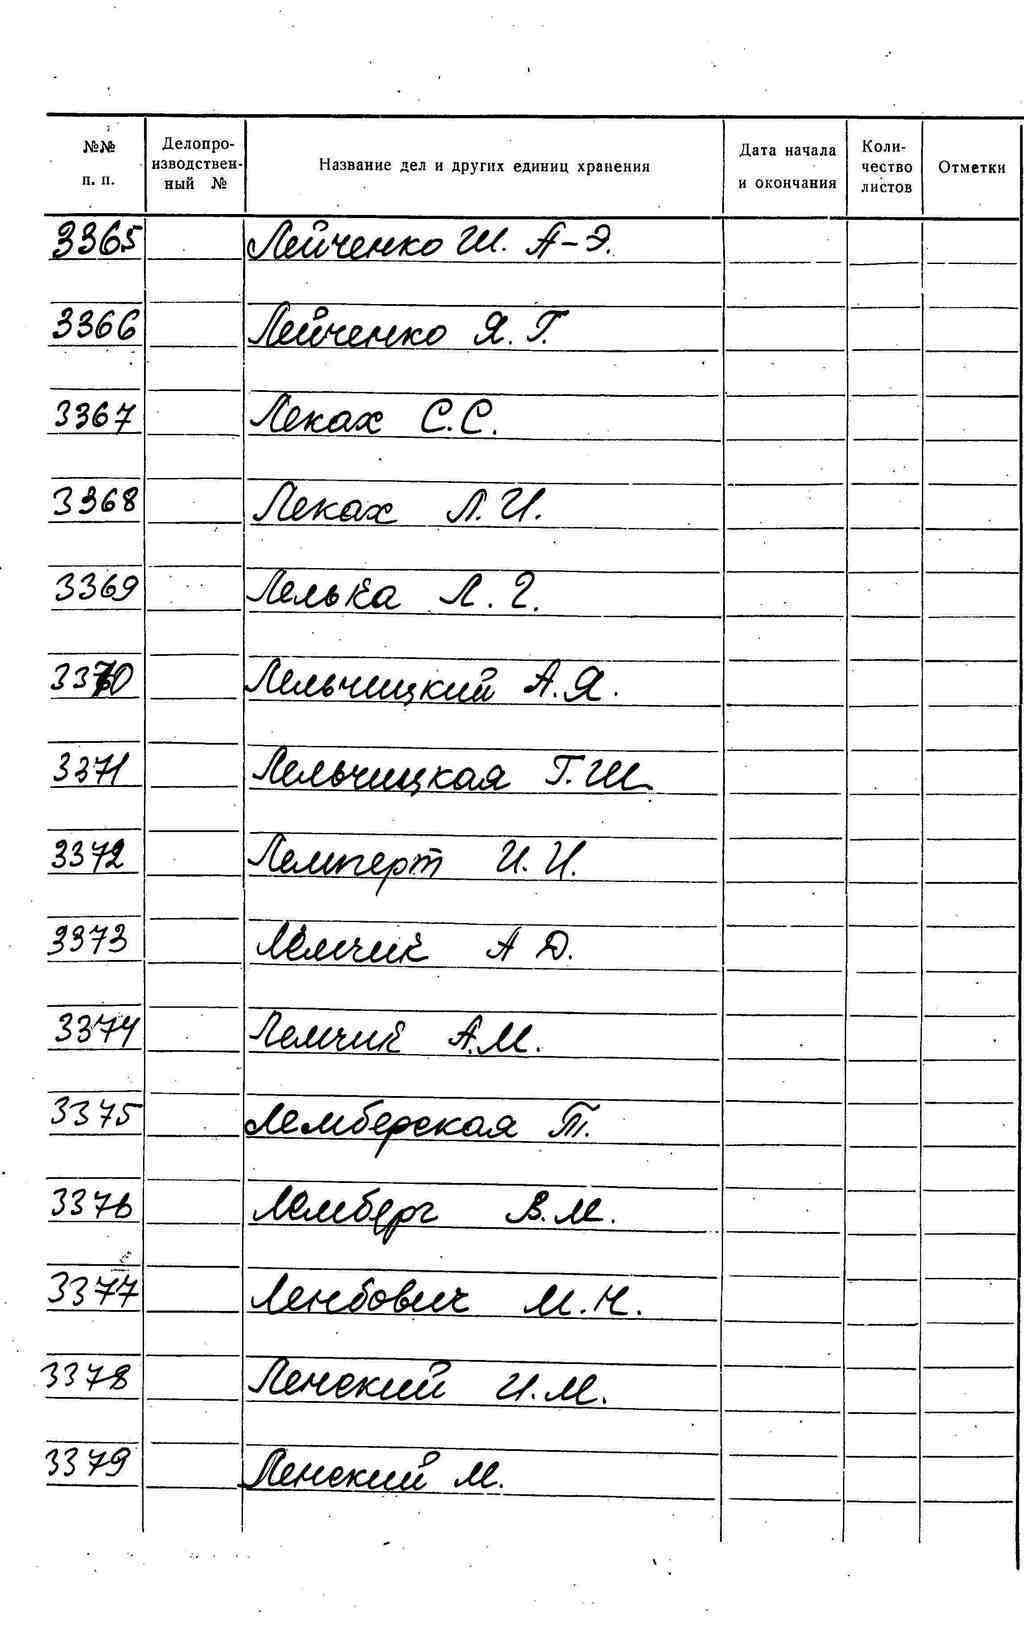 №№ п. п. Делопроизводственный № Название дел и других единиц хранения Дата начала и окончания Количество листов Отметки
3365 Лейченко Ш. А-Э.
3366 Лейченко Я. Г.
3367 Леках С.С.
3368 Леках Л.И.
3369 Лелька Л. Г.
3370 Лельчицкий А.Я.
3371 Лельчицкая Г.Ш.
3372 Лемперт И.И.
3373 Лемчик А Д.
3374 Лемчик А.М.
3375 Лемберская Т.
3376 Лемберг В.М.
3377 Ленбович М.Н.
3378 Ленский И.М.
3379 Ленский М.